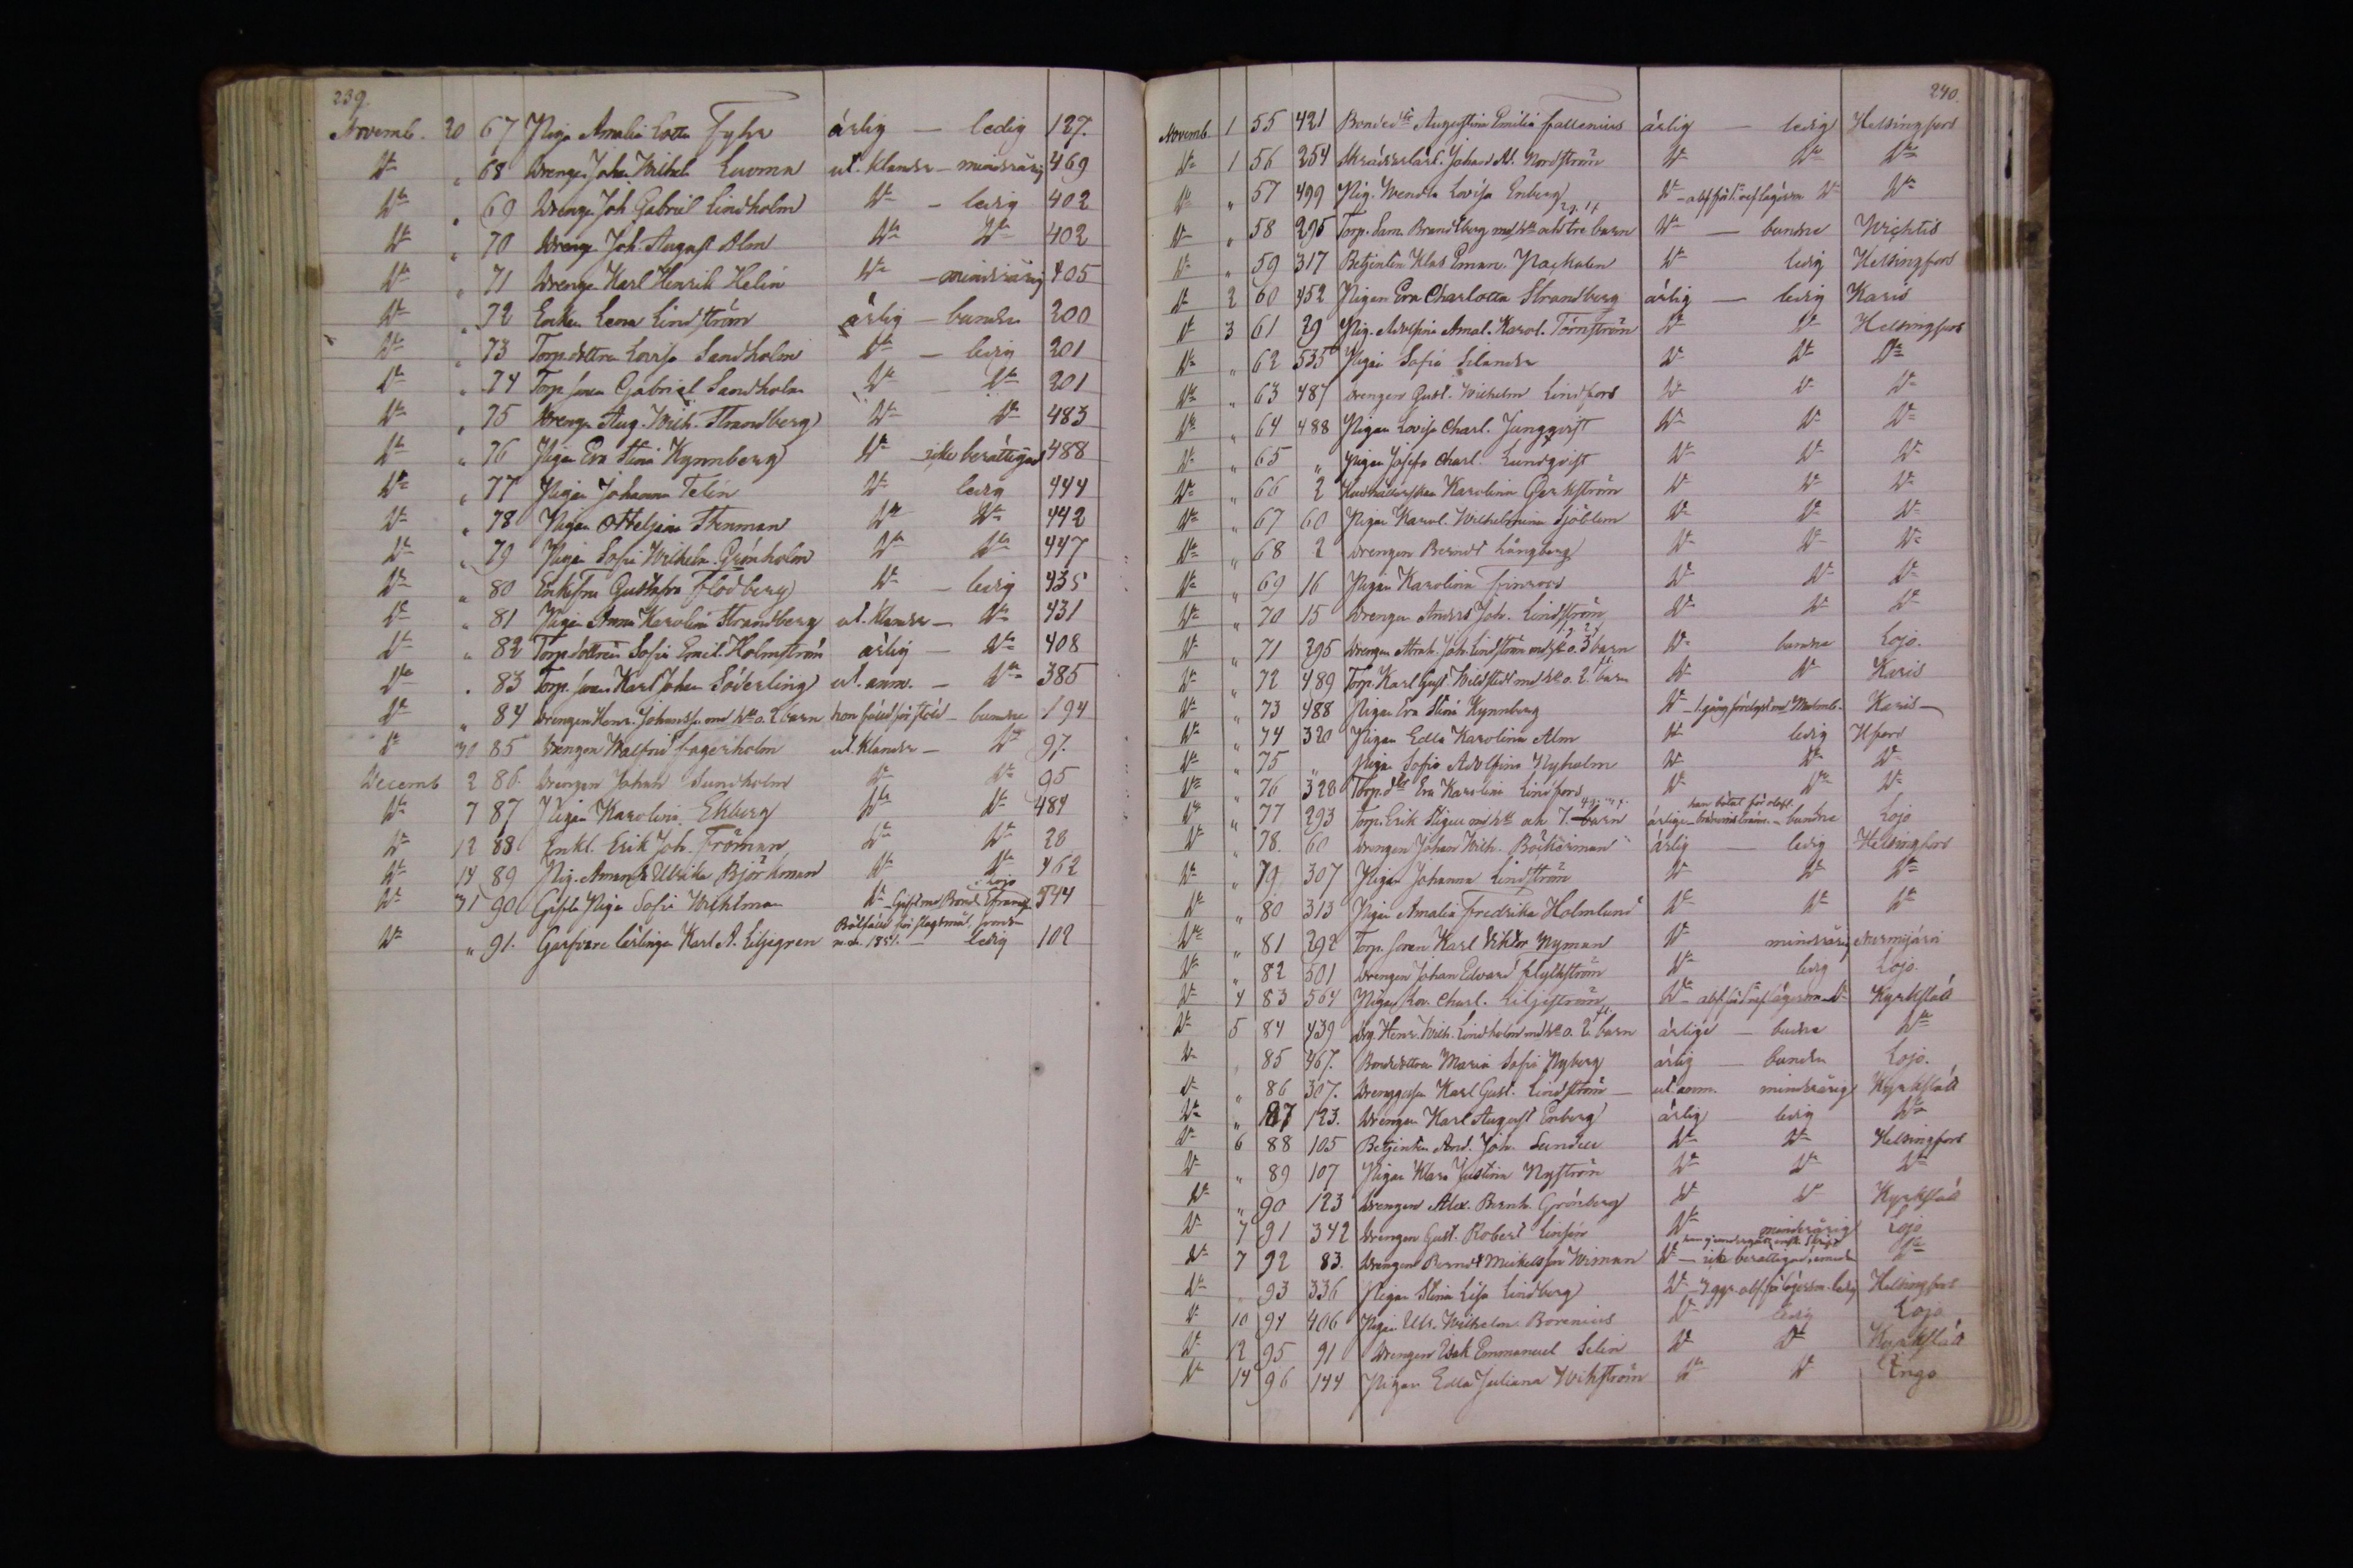 239
Novemb. 20 67 Piga Amalia Lotta Fyhr ärlig — ledig 127.
Do " 68 Drengen Johan Wilhelm Luoma ut. klander — minderårig 469
Do " 69 Drengen Joh. Gabriel Lindholm Do — ledig 402
Do " 70 Dreng. Joh. August Alm Do Do 402
Do " 71 Drengen Karl Henrik Helin Do — minderårig 405
Do " 72 Enkan Lena Lindström ärlig — bunden 200
Do " 73 Torp.dottren Lovisa Sandholm Do — ledig 201
Do " 74 Torp.sonen Gabriel Sandholm Do Do 201
Do " 75 Drengen Aug. Wilh. Strandberg Do Do 483
Do " 76 Pigan Eva Stina Kynnberg Do icke berättigad 488
Do " 77 Pigan Johanna Telin Do ledig 444
Do " 78 Pigan Otteljana Stenman Do Do 442
Do " 79 Pigan Sofia Wilhelm. Grönholm Do Do 447
Do " 80 Enkefru Gustafva Flodberg Do — ledig 435
Do " 81 Pigan Anna Karolina Strandberg ut. klander — Do 431
Do " 82 Torp.dottren Sofia Emil. Holmström ärlig — Do 408
Do " 83 Torp.sonen Karl Johan Söderling ut. anm. — Do 385
Do " 84 Drengen Henr. Johansson med Ho o. 2 barn hon fälld för stöld — bundne 194
Do 30 85 Drengen Walfrid Fagerholm ut. klander — Do 97.
Decemb 2 86. Drengen Johan Sundholm Do Do 95
Do 7 87 Pigan Karolina Ekberg Do Do 484
Do 12 88 Enkl. Erik Joh. Fröman Do Do 28
Do 14 89 Pig. Amanda Ulrika Björkman Do Do 462
Do 31 90 Gifta Piga Sofia Wichtman Do Gift med Bond. i Lojo 544
Do " 91. Garfvare lärlingen Karl A. Liljegren ledig 102
240.
Novemb. 1 55 421 Bondedtr Augustina Emilia Fallenius ärlig — ledig Helsingfors
Do 1 56 254 Skräddarlärl. Johan Ad. Nordström Do Do Do
Do " 57 499 Pig. Wendla Lovisa Enberg Do — Do Do
Do " 58 295 Torp. Sam. Brandtberg med Ho och tre barn Do — bundne Wichtis
Do " 59 317 Betjenten Klas Eman. Packalen Do ledig Helsingfors
Do 2 60 452 Pigan Eva Charlotta Strandberg ärlig — ledig Karis
Do 3 61 29 Pig. Adolfina Amal. Karol. Törnström Do Do Helsingfors
Do " 62 535 Pigan Sofia Selander Do Do Do
Do " 63 487 Drengen Gust. Wilhelm Lindfors Do Do Do
Do " 64 488 Pigan Lovisa Charl. Jungqvist Do Do Do
Do " 65 " Pigan Josefa Charl. Lundqvist Do Do Do
Do " 66 2 Hushållerskan Karolina Gerkström Do Do Do
Do " 67 60 Pigan Karol. Wilhelmina Sjöblom Do Do Do
Do " 68 2 Drengen Berndt Långberg Do Do Do
Do " 69 16 Pigan Karolina Finroos Do Do Do
Do " 70 15 Drengen Anders Joh. Lindström Do Do Do
Do " 71 295 Drengen Abrah. Joh. Lindström med Ho o. 3 barn Do bundne Lojo.
Do " 72 489 Torp. Karl Gust. Wildstedt med Ho o. 2 barn Do Do Karis
Do " 73 488 Pigan Eva Stina Kynnberg Do — Karis
Do " 74 320 Pigan Edla Karolina Alm Do ledig Hfors
Do " 75 " Pigan Sofia Adolfina Nyholm Do Do Do
Do " 76 320 Torp.dtr Eva Karolina Lindfors Do Do Do
Do " 77 293 Torp. Erik Stigell med Ho och 7 barn ärlige — bundne Lojo
Do " 78. 60 Drengen Johan Wilh. Böckerman ärlig — ledig Helsingfors
Do " 79 307 Pigan Johanna Lindström Do Do Do
Do " 80 313 Pigan Amalia Fredrika Holmlund Do Do Do
Do " 81 292 Torp. sonen Karl Viktor Nyman Do minderårig Nurmijärvi
Do " 82 501 Drengen Johan Edvard Flyckström Do ledig Lojo.
Do 4 83 564 Pigan Lov. Charl. Liljeström Do Do Kyrkslätt
Do 5 84 439 Drg. Henr. Wilh. Lindholm med Ho o. 2 barn ärlige — bundne Do
Do 85 467. Bondedottren Maria Sofia Nyberg ärlig — bunden Lojo.
Do " 86 307. Drenggossen Karl Gust. Lindström — ut. anm. minderårig Kyrkslätt
Do " 87 123. Drengen Karl August Enberg ärlig ledig Do
Do 6 88 105 Betjenten And. Joh. Sundell Do Do Helsingfors
Do " 89 107 Pigan Klara Justina Nyström Do Do Do
Do " 90 123 Drengen Alex. Bernh. Grönberg Do Do Kyrkslätt
Do 7 91 342 Drengen Gust. Robert Linsén Do minderårig Lojo
Do 7 92 83. Drengen Berndt Mickelsson Wiman Do — icke berättigad Do
Do 93 336 Pigan Stina Lisa Lindberg Do — ledig Helsingfors
Do 10 94 406 Pigan Ulr. Wilhelm. Borenius Do ledig Lojo
Do 12 95 91 Drengen Isak Emmanuel Selin Do Do Kyrkslätt
Do 14 96 144 Pigan Edla Juliana Wikström Do Do Ingo